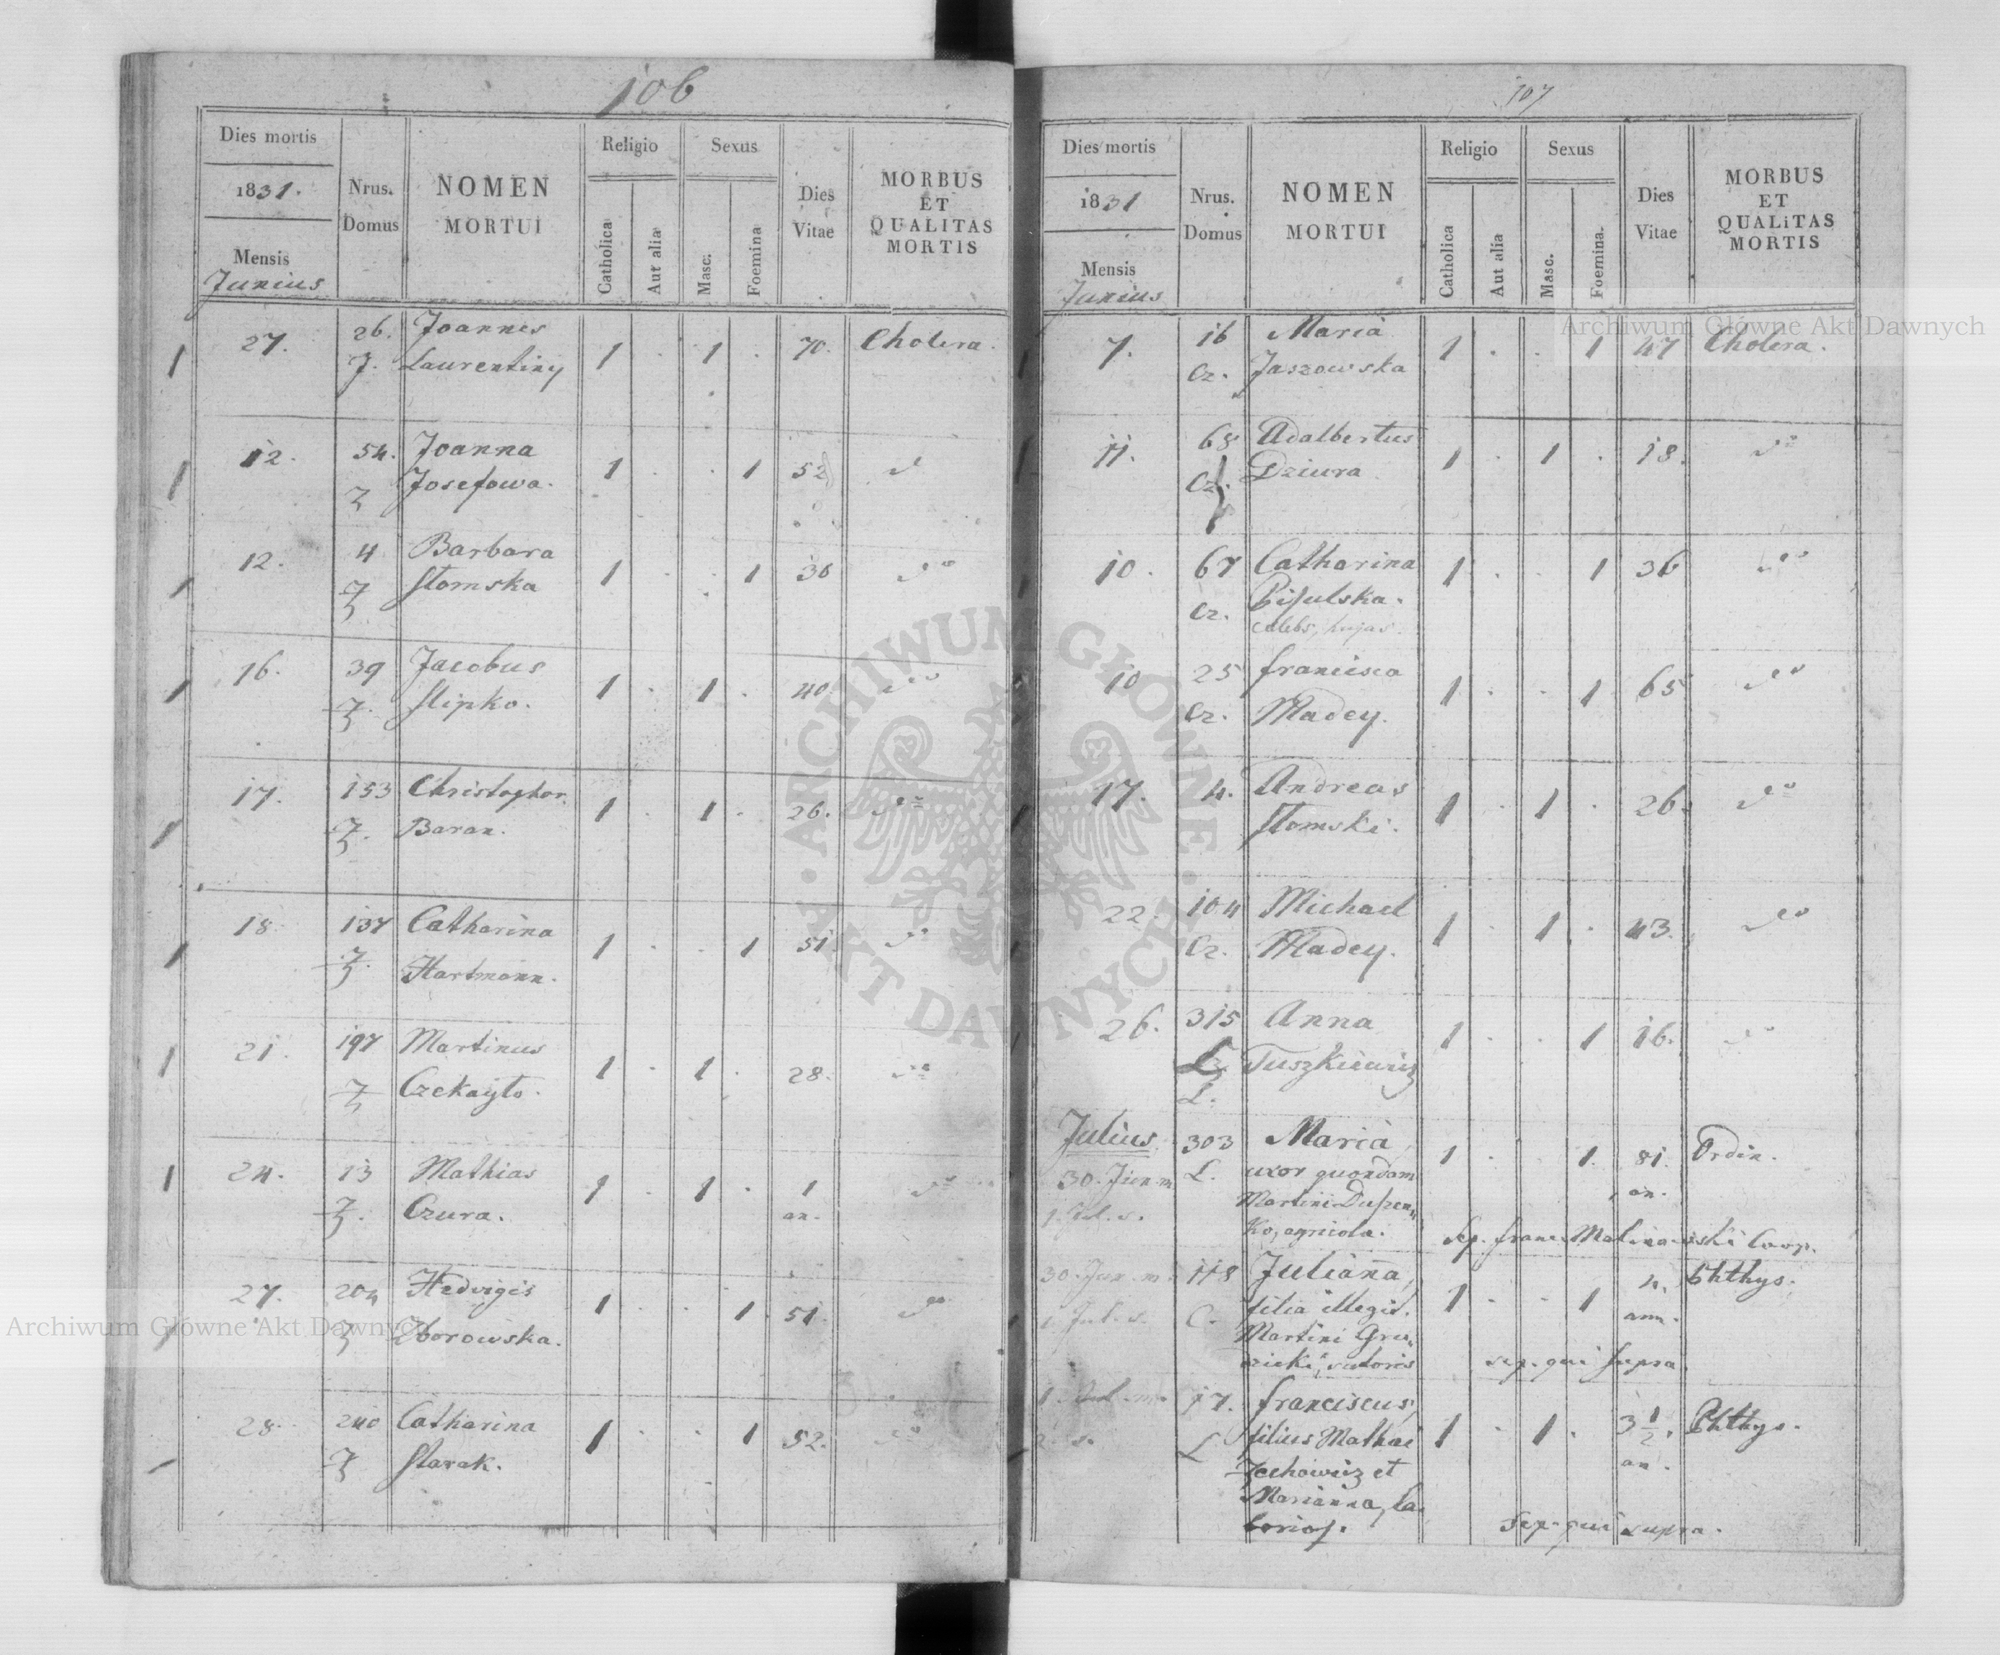 106
Dies mortis
1831.
Mensis
Junius
Nrus.
Domus
NOMEN
MORTUI
Religio
Catholica
Aut alia
Sexus
Masc.
Foemina
Dies
Vitae
MORBUS
ET
QUALITAS
MORTIS
27. 26. Joannes 1 . 1 . 70. Cholera.
Laurentiny
12. 54. Joanna 1 . . 1 52
Josefowa.
12. 4 Barbara 1 . . 1 36 do
Slomska
16. 39 Jacobus 1 . 1 . 40 do
Slipko.
17. 153 Christophor. 1 . 1 . 26. do
Baran.
18. 137 Catharina 1 . . 1 51. do
Hartmann.
21. 197 Martinus 1 . 1 . 28. do
Czekayło.
24. 13 Mathias 1 . 1 . 1 do
Czura. an.
27. 204 Hedvigis 1 . . 1 51. do
Zborowska.
28. 240 Catharina 1 . . 1 52. do
Slarak.
107
Dies mortis
1831
Mensis
Junius
Nrus.
Domus
NOMEN
MORTUI
Religio
Catholica
Aut alia
Sexus
Masc.
Foemina.
Dies
Vitae
MORBUS
ET
QUALITAS
MORTIS
7. 16 Maria 1 . . 1 47 Cholera.
Cz. Jaszowska
11. 68 Adalbertus 1 . 1 . 18. do
Cz. Dziura
10. 67 Catharina 1 . . 1 36 do
Cz.
10 25 Francisca 1 . . 1 65 do
Cz. Madey.
17. 4. Andreas 1 . 1 . 26. do
Slomski.
22. 104 Michael 1 . 1 . 43. do
Cz. Madey.
26. 315 Anna 1 . . 1 16. do
Tuszkiewicz
L.
Julius 303 Maria, 1 . . 1. 81. Ordin.
30. Jun. m. L. uxor quondam an.
1. Jul. s. Martini Duszen„
ko, agricola. Sep. Franc. Malinowski Coop.
30. Jun. m. 118 Julianna, 1 . . 1 4. Phthys.
1. Jul. s. C. filia illegit. ann.
Martini Gru„
zicki, sutoris sep. qui supra.
1. Jul. m. 17. Franciscus, 1 . 1 . 3 1/2. Phthys.
2. s. L filius Mathai an.
Zechowicz et
Marianna, la„
borios. Sep. qui supra.
Archiwum Główne Akt Dawnych
Archiwum Główne Akt Dawnych
ARCHIWUM GŁÓWNE AKT DAWNYCH